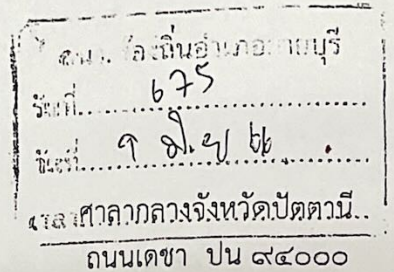 ท้องถิ่นอำเภอสายบุรี
รับที่ 675
วันที่ มิ.ย 66
เวลา ศาลากลางจังหวัดปัตตานี
ถนนเดชา ปน ๙๔๐๐๐